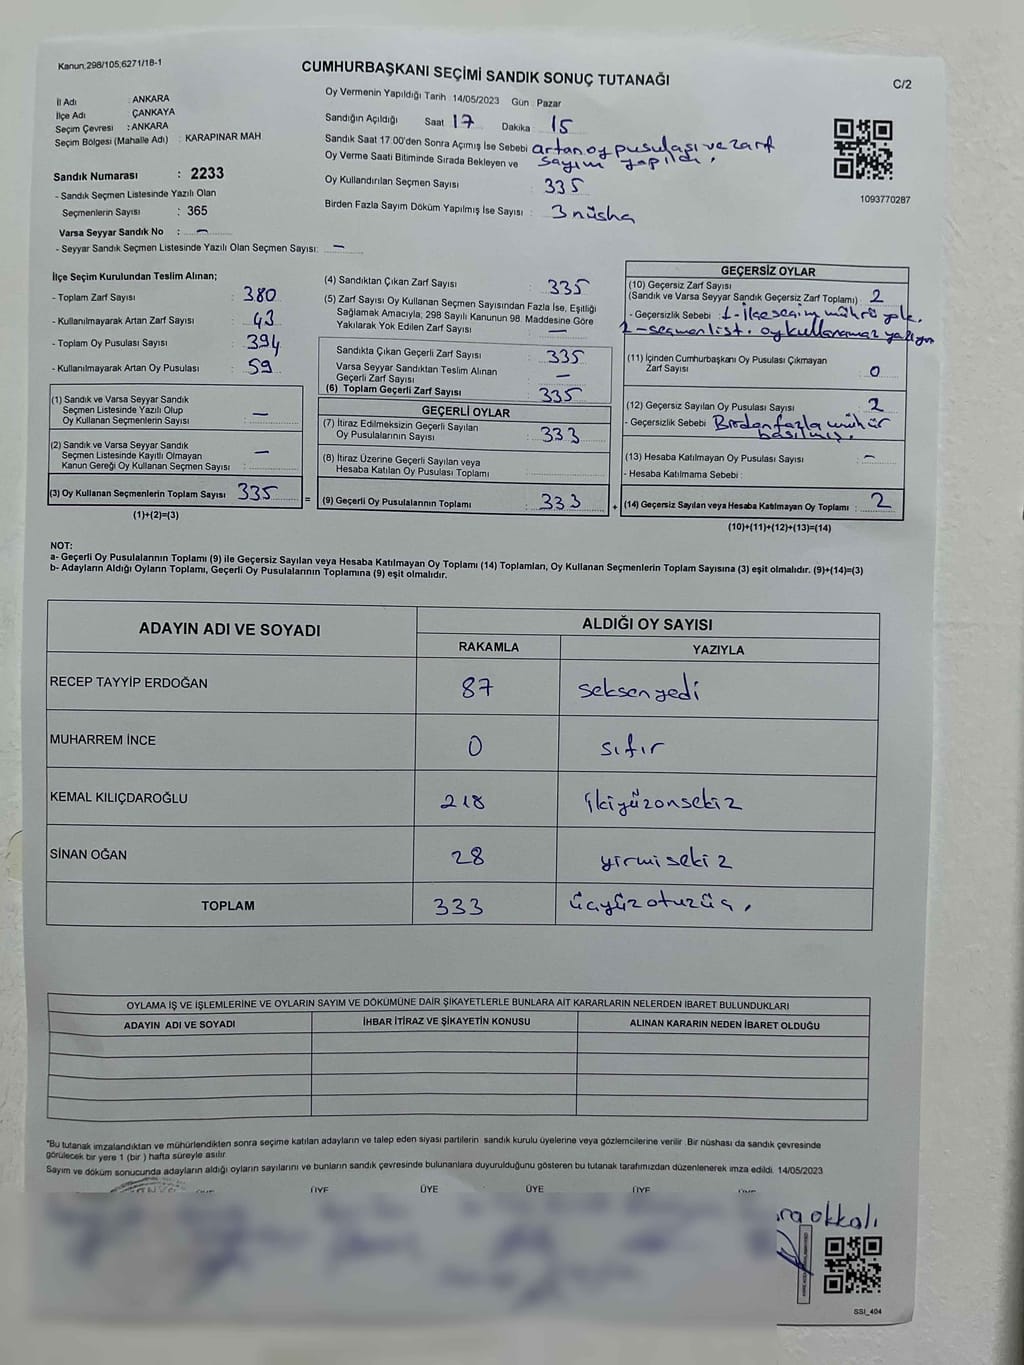 Kanun,298/105,6271/18-1
CUMHURBAŞKANI SEÇİMİ SANDIK SONUÇ TUTANAĞI
C/2
İl Adı : ANKARA
İlçe Adı : ÇANKAYA
Seçim Çevresi : ANKARA
Seçim Bölgesi (Mahalle Adı) : KARAPINAR MAH
Sandık Numarası : 2233
- Sandık Seçmen Listesinde Yazılı Olan
Seçmenlerin Sayısı : 365
Varsa Seyyar Sandık No : -
- Seyyar Sandık Seçmen Listesinde Yazılı Olan Seçmen Sayısı: -
Oy Vermenin Yapıldığı Tarih 14/05/2023 Gün Pazar
Sandığın Açıldığı Saat 17 Dakika : 15
Sandık Saat 17.00'den Sonra Açımış İse Sebebi artan oy pusulası ve zarf
Oy Verme Saati Bitiminde Sırada Bekleyen ve sayım yapıldı.
Oy Kullandırılan Seçmen Sayısı : 335
Birden Fazla Sayım Döküm Yapılmış İse Sayısı : 3 nüsha
1093770287
İlçe Seçim Kurulundan Teslim Alınan;
- Toplam Zarf Sayısı : 380
- Kullanılmayarak Artan Zarf Sayısı : 43
- Toplam Oy Pusulası Sayısı : 394
- Kullanılmayarak Artan Oy Pusulası : 59
(1) Sandık ve Varsa Seyyar Sandık
Seçmen Listesinde Yazılı Olup
Oy Kullanan Seçmenlerin Sayısı : -
(2) Sandık ve Varsa Seyyar Sandık
Seçmen Listesinde Kayıtlı Olmayan
Kanun Gereği Oy Kullanan Seçmen Sayısı : -
(3) Oy Kullanan Seçmenlerin Toplam Sayısı : 335
(1)+(2)=(3)
(4) Sandıktan Çıkan Zarf Sayısı : 335
(5) Zarf Sayısı Oy Kullanan Seçmen Sayısından Fazla İse, Eşitliği
Sağlamak Amacıyla, 298 Sayılı Kanunun 98. Maddesine Göre
Yakılarak Yok Edilen Zarf Sayısı : -
Sandıkta Çıkan Geçerli Zarf Sayısı : 335
Varsa Seyyar Sandıktan Teslim Alınan
Geçerli Zarf Sayısı : -
(6) Toplam Geçerli Zarf Sayısı : 335
GEÇERLİ OYLAR
(7) İtiraz Edilmeksizin Geçerli Sayılan
Oy Pusulalarının Sayısı : 333
(8) İtiraz Üzerine Geçerli Sayılan veya
Hesaba Katılan Oy Pusulası Toplamı :
= (9) Geçerli Oy Pusulalarının Toplamı : 333
GEÇERSİZ OYLAR
(10) Geçersiz Zarf Sayısı
(Sandık ve Varsa Seyyar Sandık Geçersiz Zarf Toplamı) : 2
- Geçersizlik Sebebi : 1- İlçe seçim mührü yok.
1-seçmen list. oy kullanamaz yazıyor
(11) İçinden Cumhurbaşkanı Oy Pusulası Çıkmayan
Zarf Sayısı : 0
(12) Geçersiz Sayılan Oy Pusulası Sayısı : 2
- Geçersizlik Sebebi : Birden fazla mühür
basılmış.
(13) Hesaba Katılmayan Oy Pusulası Sayısı : -
- Hesaba Katılmama Sebebi :
+ (14) Geçersiz Sayılan veya Hesaba Katılmayan Oy Toplamı : 2
(10)+(11)+(12)+(13)=(14)
NOT:
a- Geçerli Oy Pusulalarının Toplamı (9) ile Geçersiz Sayılan veya Hesaba Katılmayan Oy Toplamı (14) Toplamları, Oy Kullanan Seçmenlerin Toplam Sayısına (3) eşit olmalıdır. (9)+(14)=(3)
b- Adayların Aldığı Oyların Toplamı, Geçerli Oy Pusulalarının Toplamına (9) eşit olmalıdır.
ADAYIN ADI VE SOYADI ALDIĞI OY SAYISI
RAKAMLA YAZIYLA
RECEP TAYYİP ERDOĞAN 87 seksenyedi
MUHARREM İNCE 0 sıfır
KEMAL KILIÇDAROĞLU 218 ikiyüzonsekiz
SİNAN OĞAN 28 yirmisekiz
TOPLAM 333 üçyüzotuzüç.
OYLAMA İŞ VE İŞLEMLERİNE VE OYLARIN SAYIM VE DÖKÜMÜNE DAİR ŞİKAYETLERLE BUNLARA AİT KARARLARIN NELERDEN İBARET BULUNDUKLARI
ADAYIN ADI VE SOYADI İHBAR İTİRAZ VE ŞİKAYETİN KONUSU ALINAN KARARIN NEDEN İBARET OLDUĞU
*Bu tutanak imzalandıktan ve mühürlendikten sonra seçime katılan adayların ve talep eden siyasi partilerin sandık kurulu üyelerine veya gözlemcilerine verilir. Bir nüshası da sandık çevresinde
görülecek bir yere 1 (bir ) hafta süreyle asılır.
Sayım ve döküm sonucunda adayların aldığı oyların sayılarını ve bunların sandık çevresinde bulunanlara duyurulduğunu gösteren bu tutanak tarafımızdan düzenlenerek imza edildi. 14/05/2023
ÜYE ÜYE ÜYE ÜYE
okkalı
SSI_404